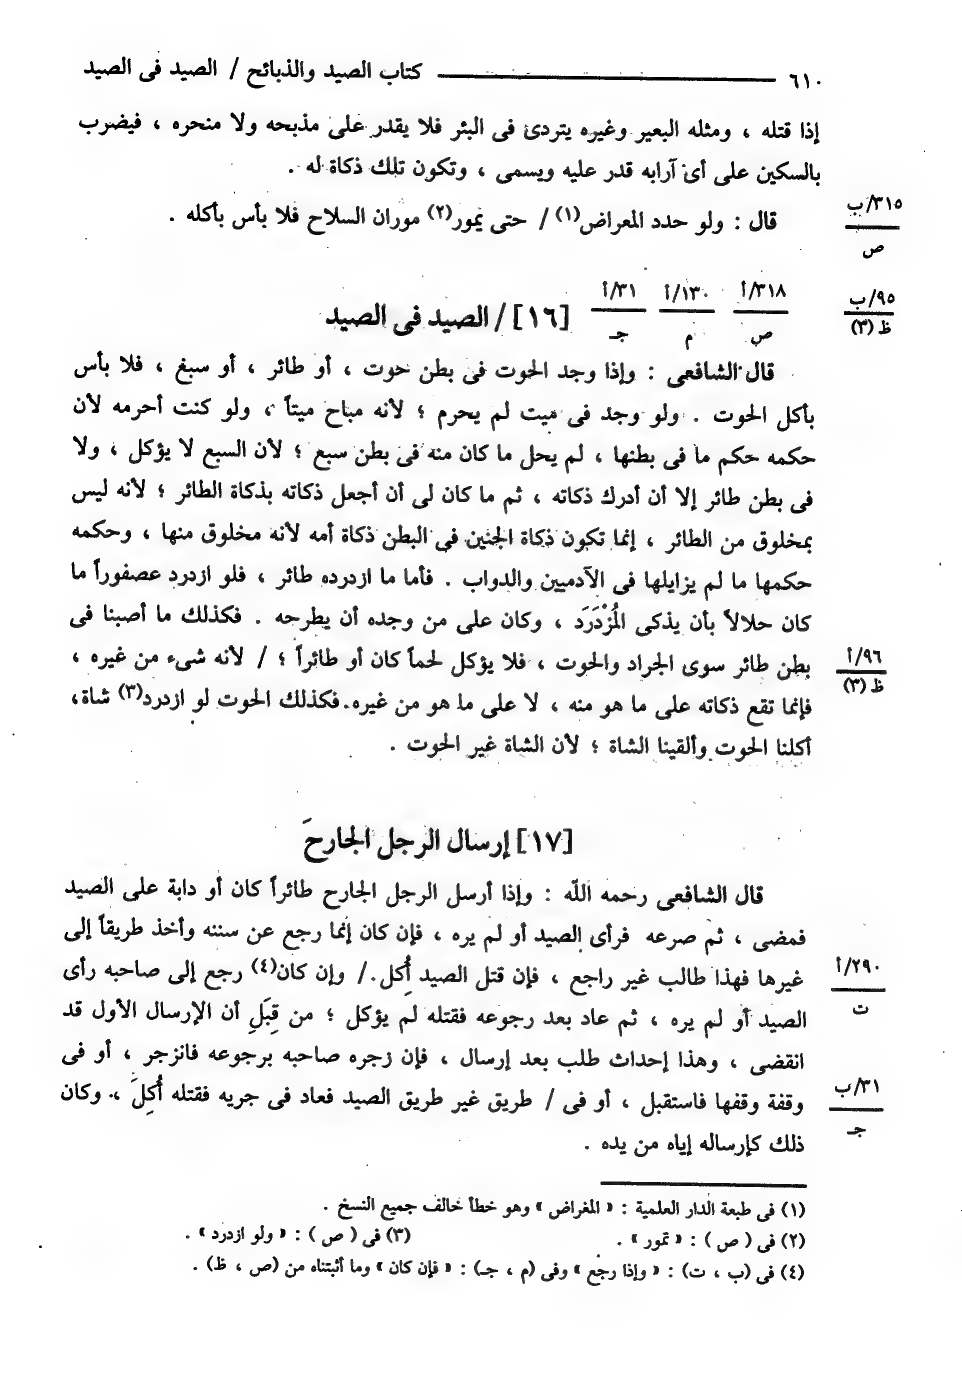 ٦١٠ ــــــــــــ كتاب الصيد والذبائح / الصيد فى الصيد
إذا قتله ، ومثله البعير وغيره يتردى فى البئر فلا يقدر على مذبحه ولا منحره ، فيضرب
بالسكين على أى آرابه قدر عليه ويسمى ، وتكون تلك ذكاة له .
٣١٥/ب
ص
قال : ولو حدد المعراض(١) / حتى يمور(٢) موران السلاح فلا بأس بأكله .
٩٥/ب
ظ (٣)
٣١٨/أ
ص
١٣٠/أ
م
٣١/أ
جـ
[١٦] / الصيد فى الصيد
قال الشافعى : وإذا وجد الحوت فى بطن حوت ، أو طائر ، أو سبغ ، فلا بأس
بأكل الحوت . ولو وجد فى ميت لم يحرم ؛ لأنه مباح ميتاً ، ولو كنت أحرمه لأن
حكمه حكم ما فى بطنها ، لم يحل ما كان منه فى بطن سبع ؛ لأن السبع لا يؤكل ، ولا
فى بطن طائر إلا أن أدرك ذكاته ، ثم ما كان لى أن أجعل ذكاته بذكاة الطائر ؛ لأنه ليس
بمخلوق من الطائر ، إنما تكون ذكاة الجنين فى البطن ذكاة أمه لأنه مخلوق منها ، وحكمه
حكمها ما لم يزايلها فى الآدميين والدواب . فأما ما ازدرده طائر ، فلو ازدرد عصفوراً ما
كان حلالاً بأن يذكى المُزْدَرَد ، وكان على من وجده أن يطرحه . فكذلك ما أصبنا فى
بطن طائر سوى الجراد والحوت ، فلا يؤكل لحماً كان أو طائراً ؛ / لأنه شىء من غيره ،
٩٦/أ
ظ (٣)
فإنما تقع ذكاته على ما هو منه ، لا على ما هو من غيره. فكذلك الحوت لو ازدرد(٣) شاة،
أكلنا الحوت وألقينا الشاة ؛ لأن الشاة غير الحوت .
[١٧] إرسال الرجل الجارحَ
قال الشافعى رحمه الله : وإذا أرسل الرجل الجارح طائراً كان أو دابة على الصيد
فمضى ، ثم صرعه فرأى الصيد أو لم يره ، فإن كان إنما رجع عن سننه وأخذ طريقاً إلى
غيرها فهذا طالب غير راجع ، فإن قتل الصيد أُكِل . / وإن كان(٤) رجع إلى صاحبه رأى
٢٩٠/أ
ت
الصيد أو لم يره ، ثم عاد بعد رجوعه فقتله لم يؤكل ؛ من قِبَلِ أن الإرسال الأول قد
انقضى ، وهذا إحداث طلب بعد إرسال ، فإن زجره صاحبه برجوعه فانزجر ، أو فى
وقفة وقفها فاستقبل ، أو فى / طريق غير طريق الصيد فعاد فى جريه فقتله أُكِلَ ، وكان
٣١/ب
جـ
ذلك كإرساله إياه من يده .
(١) فى طبعة الدار العلمية : « المغراض » وهو خطأ خالف جميع النسخ .
(٢) فى ( ص ) : « تمور » . (٣) فى ( ص ) : « ولو ازدرد » .
(٤) فى (ب ، ت) : « وإذا رجع » وفى (م ، جـ) : « فإن كان » وما أثبتناه من (ص ، ظ) .